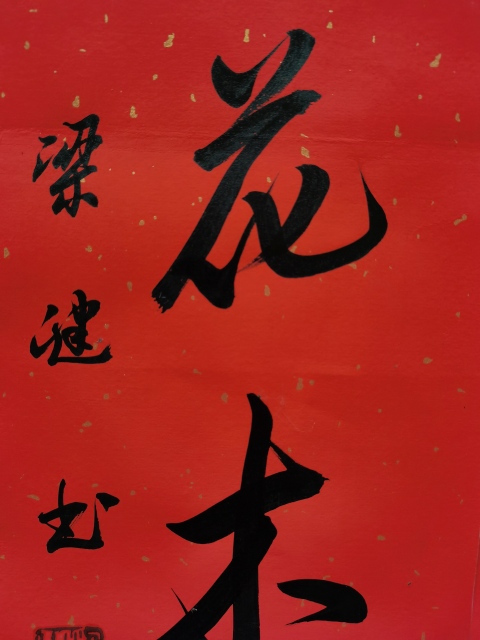 花木
梁健书